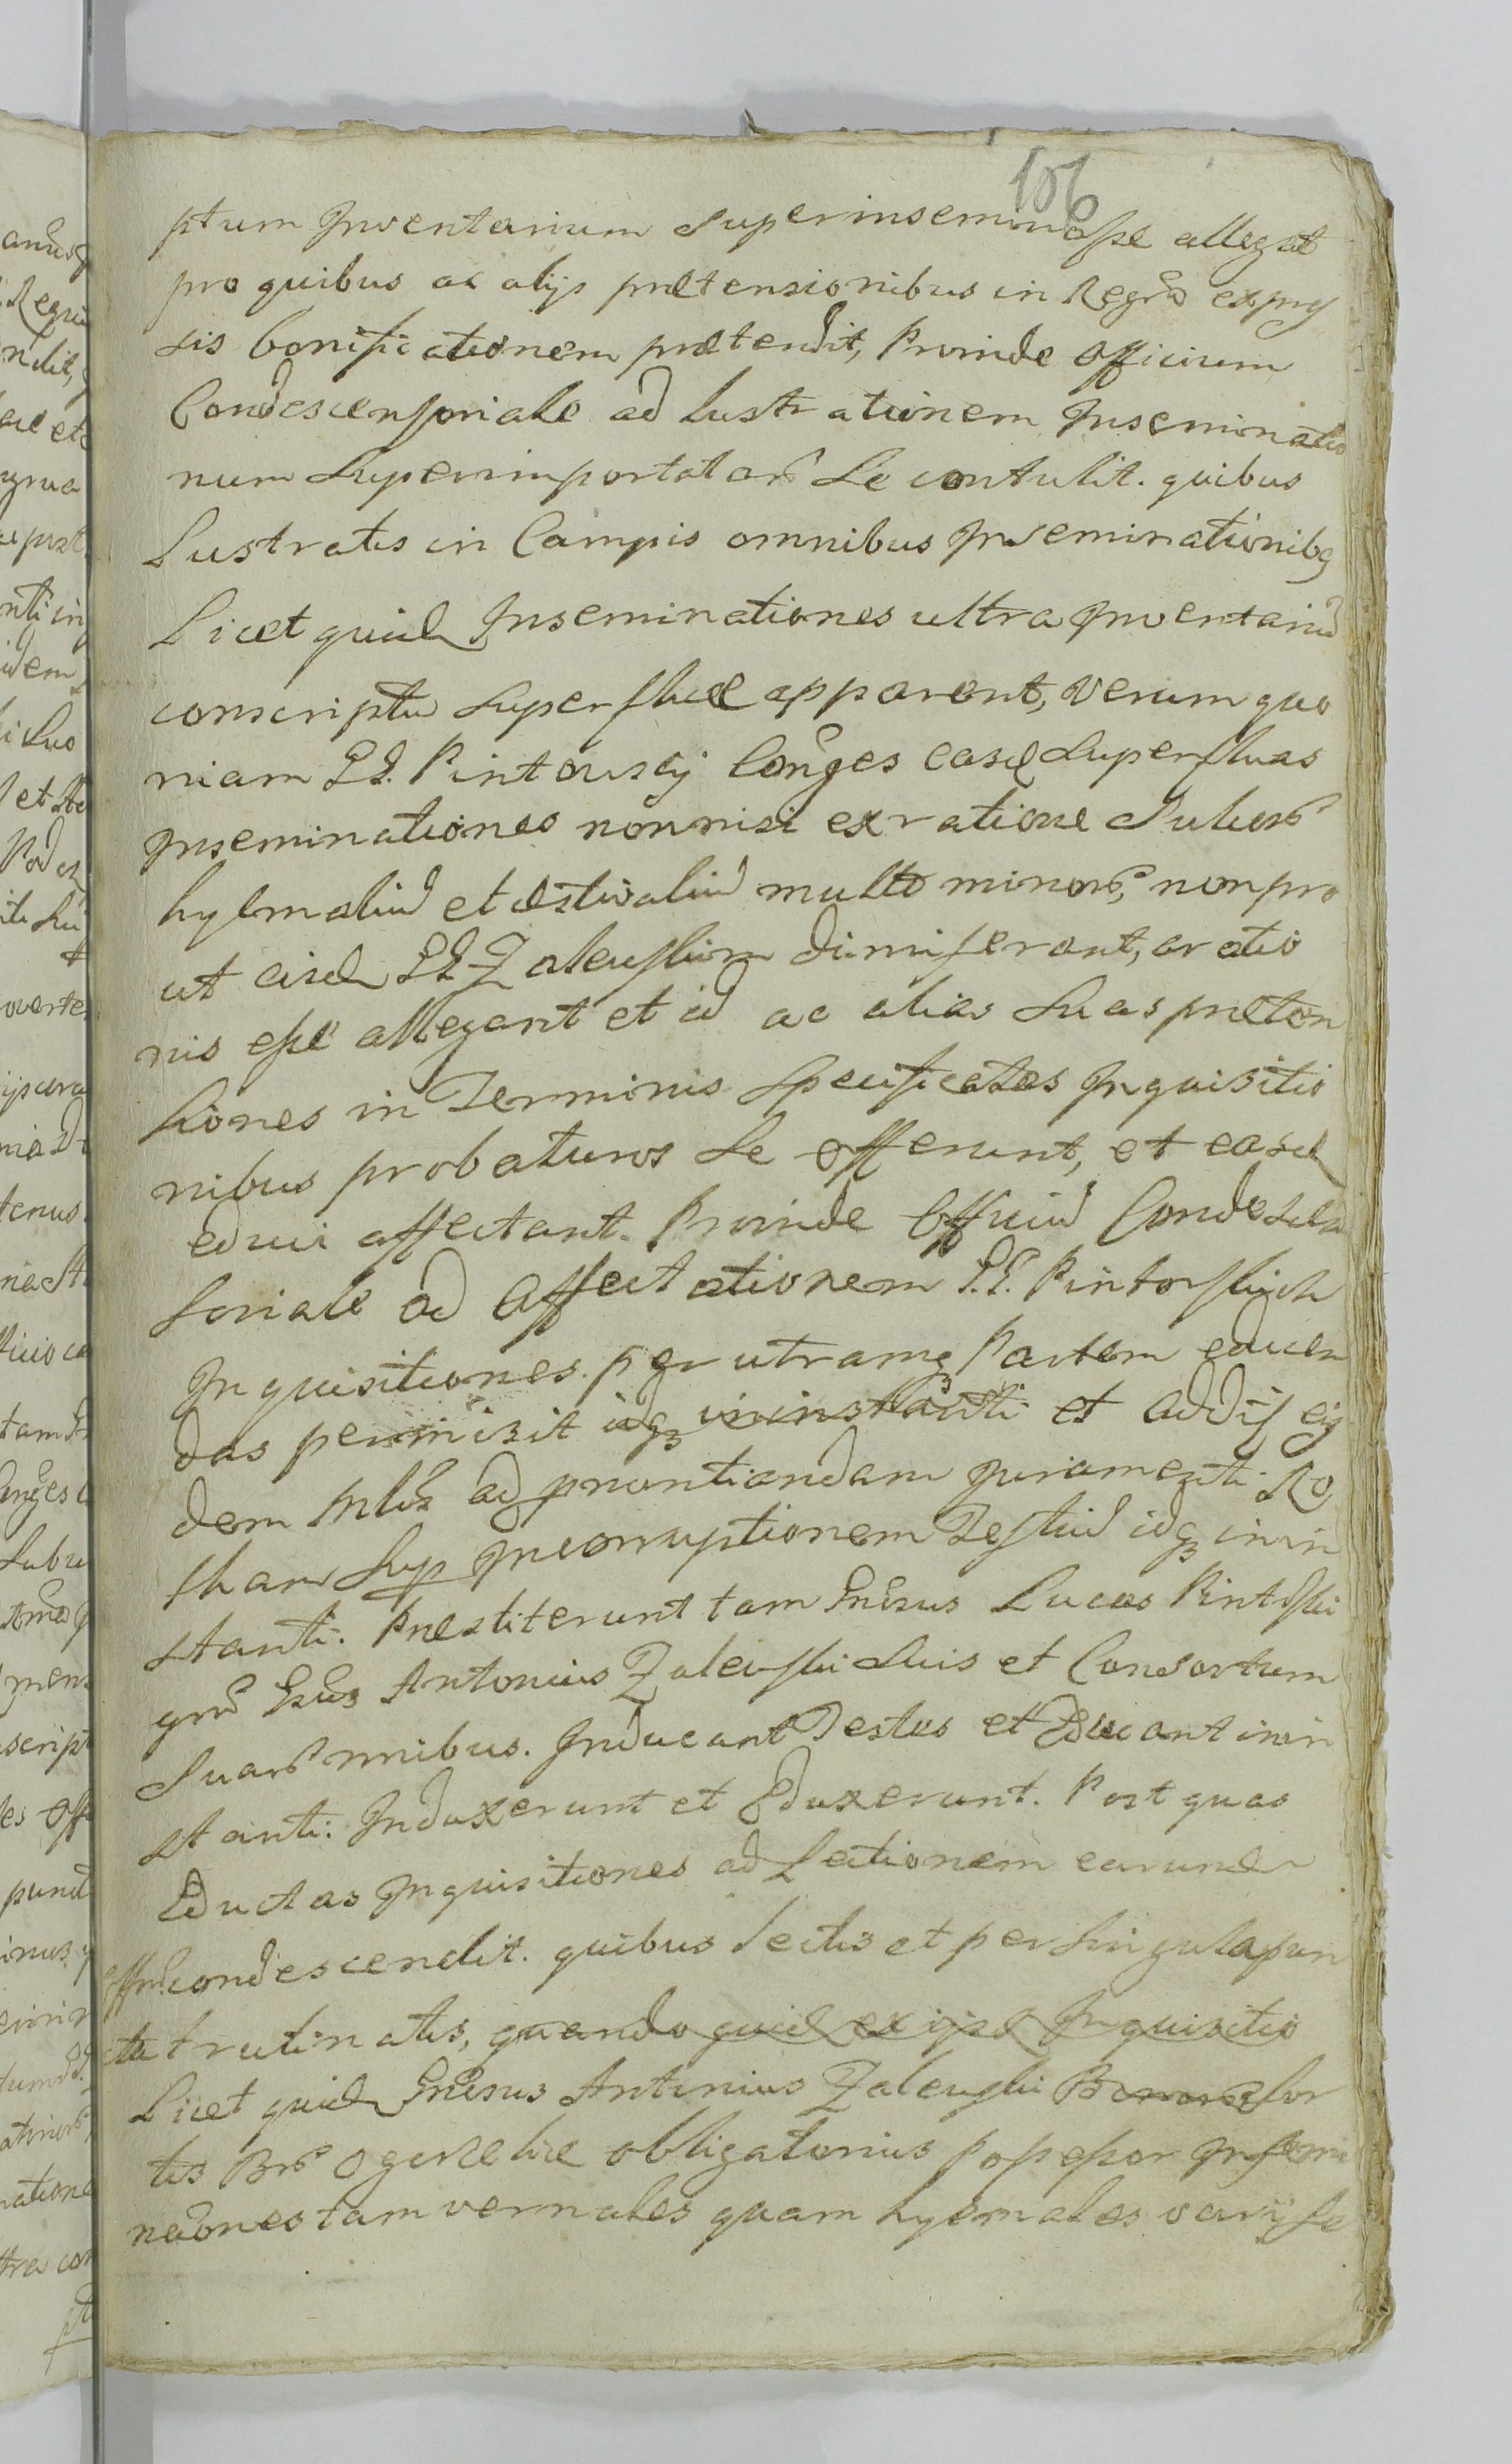 106
ptum Inventarium Superinseminasse allegat
pro quibus ac alijs prætensionibus in Regro expres
sis bonificationem prætendit, Proinde Officium
Condescensoriale ad lustrationem Inseminatio
num Superimportatar Se contulit. quibus
Lustratis in Campis omnibus Inseminationibq
Licet quid Inseminationes ultra Inventariu
conscriptu Superfluæ apparent, verum quo
niam GG. Pintowscij Conges easd Superfluas
Inseminationes nonnisi ex ratione Sulcor
hyemaliu et æstivaliu multo minor, non pro
ut eisd GG Zaleuskim dimiserant, aratio
nis esse allegant et id ac alias Suas præten
siones in Terminis Specificatas Inquisitio
nibus probaturos Se offerunt, et easd
educi affectant. Proinde Officiu Condescen
soriale ad Affectationem G.G. Pintoskich
Inquisitiones per utramq Partem educen
das permisit idq ininstanti et Addis eis
dem ad pronuntiandam juramenti Ro
tham Sup Incorruptionem Testiu idq inin
stanti. Præstiterunt tam Gnrsus Lucas Pintoski
qm Gnsus Antonius Zaleuski Suis et Consortum
Suar nnibus. Inducant Testes et Educant inin
stanti. Induxerunt et Eduxerunt. Post quas
Eductas Inquisitiones ad Lectionem earund
Offm condescendit. quibus lectis et per Singula pun
cta trutinatis, quando quid ex ijsd Inquisitio
Licet quid Gnrsus Antonius Zaleuski Bonor Sor
tis Br Ogerelice obligatorius Possessor Insemi
naones tam vernales quam hyemales varijs Se